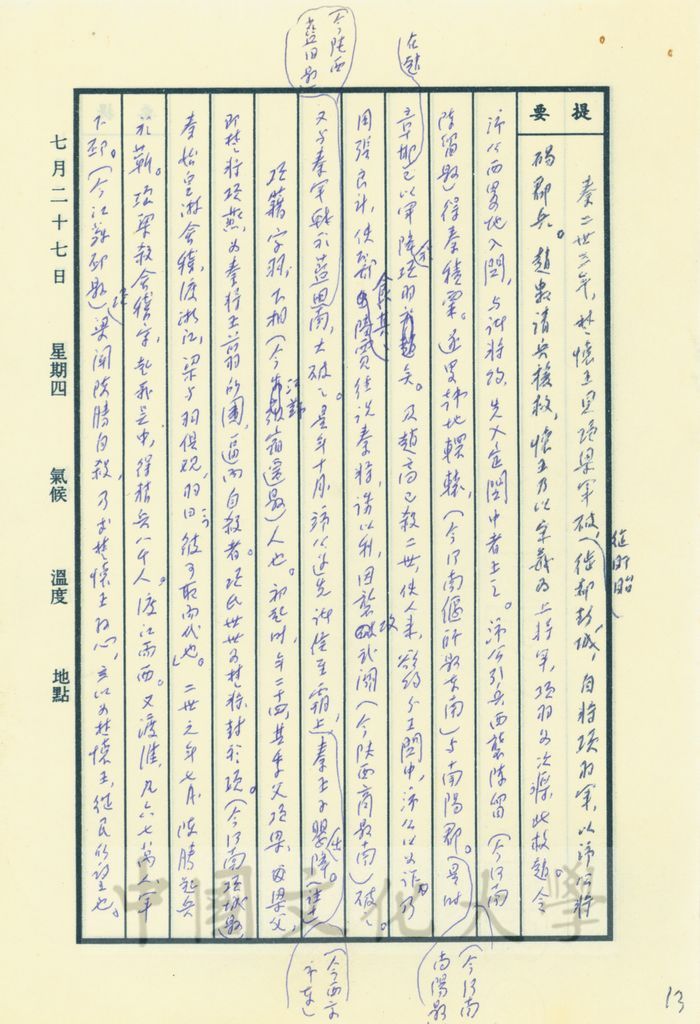 提要
秦二世三年，楚懷王見項梁軍破，（從盱眙）徙都彭城，自將項羽軍，以沛公將
碭郡兵。趙數請兵援救，懷王乃以宋義為上將軍，項羽為次將，北救趙。令
沛公西略地入關，與諸將約，先入定關中者王之。沛公引兵西襲陳留（今河南
陳留縣）得秦積粟。遂略韓地轘轅，（今河南偃師縣東南）與南陽郡。（是時
（今河南
南陽縣）
在趙
章邯已以軍降項羽矣。及趙高已殺二世，使人來，欲約分王關中，沛公以為詐，乃
用張良計，使酈食其、陸賈往說秦將，誘以利，因襲攻武關（今陝西商縣南）破之。
（今陝西
藍田縣）
又與秦軍戰於藍田南，大破之。是年十月，沛公遂先諸侯至霸上，秦王子嬰降
（今西安
市東）
項籍字羽，下相（今江蘇宿遷縣）人也。初起時，年二十四，其季父項梁，梁父
即楚將項燕，為秦將王翦所圍，逼而自殺者。項氏世世為楚將，封於項。（今河南項城縣）
秦始皇游會稽，渡浙江，梁與羽俱觀，羽曰：彼可取而代也。二世元年七月，陳勝起兵
於蘄。項梁殺會稽守，起義吳中，得精兵八千人。渡江而西。又渡淮，凡六七萬人，軍
下邳。（今江蘇邳縣）梁聞陳勝自殺，乃求楚懷王孫心，立以為楚懷王，從民所望也。
七月二十七日 星期四 氣候 溫度 地點
中國文化大學
13